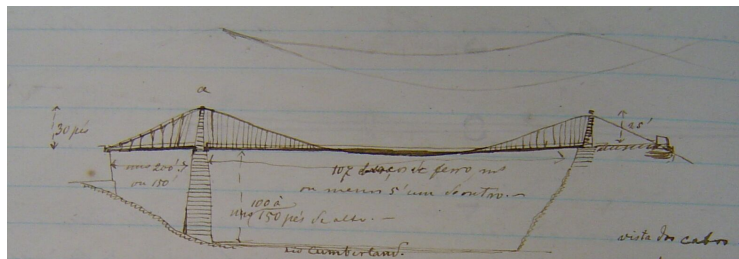 a
30 pés
25'
uns 200'
ou 150'
107 de ferro mˢ
ou menos 5' um do outro. —
100 à
uns 150 pés de alto. —
Rio Cumberland.
vista dos cabos